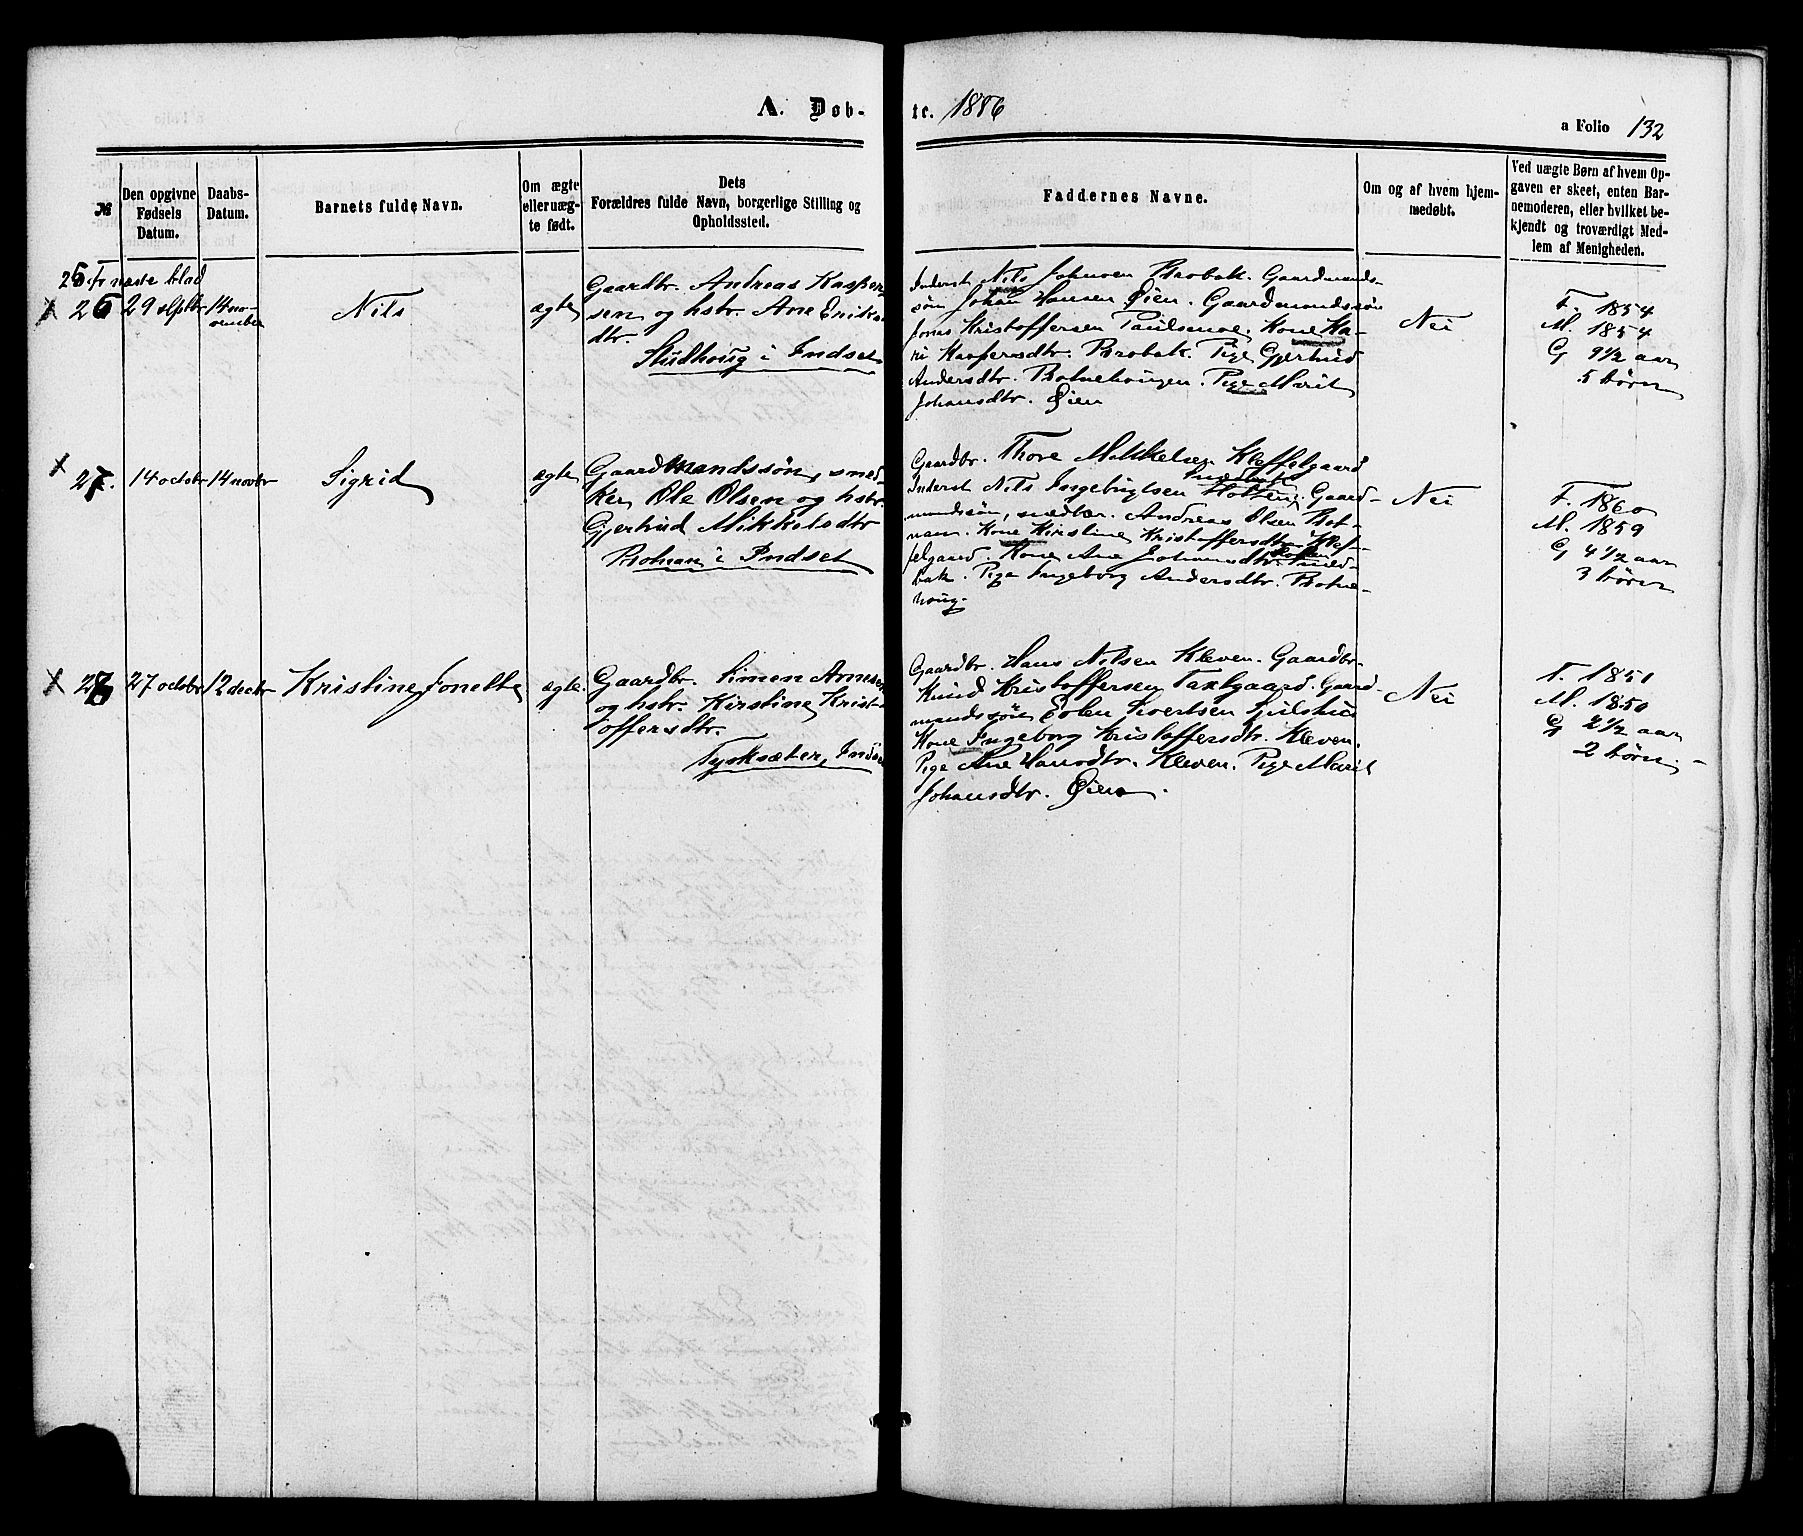 A. Døb- te. 1886
a Folio 132
№
Den opgivne Fødsels Datum.
Daabs-Datum.
Barnets fulde Navn.
Om ægte eller uægte født.
Dets Forældres fulde Navn, borgerlige Stilling og Opholdssted.
Faddernes Navne.
Om og af hvem hjemmedøbt.
Ved uægte Børn af hvem Opgaven er skeet, enten Barnemoderen, eller hvilket bekjendt og troværdigt Medlem af Menigheden.
næste blad
X 26
29 septbr
14 november
Nils
ægte
Gaardbr. Andreas Kasper-
sen og hstr. Ane Eriks-
dtr.
Studhoug i Indset
Inderst Nils Johnsen Brobak. Gaardmands-
søn Johan Hansen Øien. Gaardmandssøn
Jons Kristoffersen Paulsmoe. Kone Ka-
ri Kaspersdtr. Brobak. Pige Gjertrud
Andersdtr. Botnehougen. Pige Marit
Johansdtr. Øien
Nei
F. 1854
M. 1854
G 9 1/2 aar
5 børn
X 27.
14 octobr
14 novbr
Sigrid
ægte
Gaardmandssøn, sned-
ker Ole Olsen og hstr.
Gjertrud Mikkelsdtr
Botnan i Indset
Gaardbr. Thore Mikkelsen Kleffelgaard
Inderst Nils Ingebrigtsen Gaard-
mandssøn, snedker. Andreas Olsen Bot-
nan. Kone Kirstine Kristoffersdtr. Klef-
felgaard. Kone Ane Johannsdtr. Smed-
bak. Pige Ingeborg Andersdtr. Botne-
houg.
Nei
F. 1860
M. 1859
G 4 1/2 aar
3 børn
X 28
27 octobr
12 decbr
Kristine Jonette
ægte.
Gaardbr. Simen Arnesen
og hstr. Kirstine Krist-
offersdtr.
Tysksæter, Indset
Gaardbr. Hans Nilsen Kleven. Gaardbr.
Knud Kristoffersen Taxlgaard. Gaard-
mandssøn Esten Sivertsen
Kone Ingeborg Kristoffersdtr. Kleven.
Pige Ane Hansdtr. Kleven. Pige Marit
Johansdtr. Øien.
Nei
F. 1850
M. 1850
G 2 1/2 aar
2 børn.